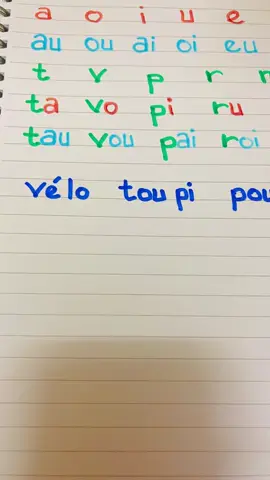 a o i u e
au ou ai oi eu
t v p r
ta vo pi ru
tau vou pai roi
vélo toupi